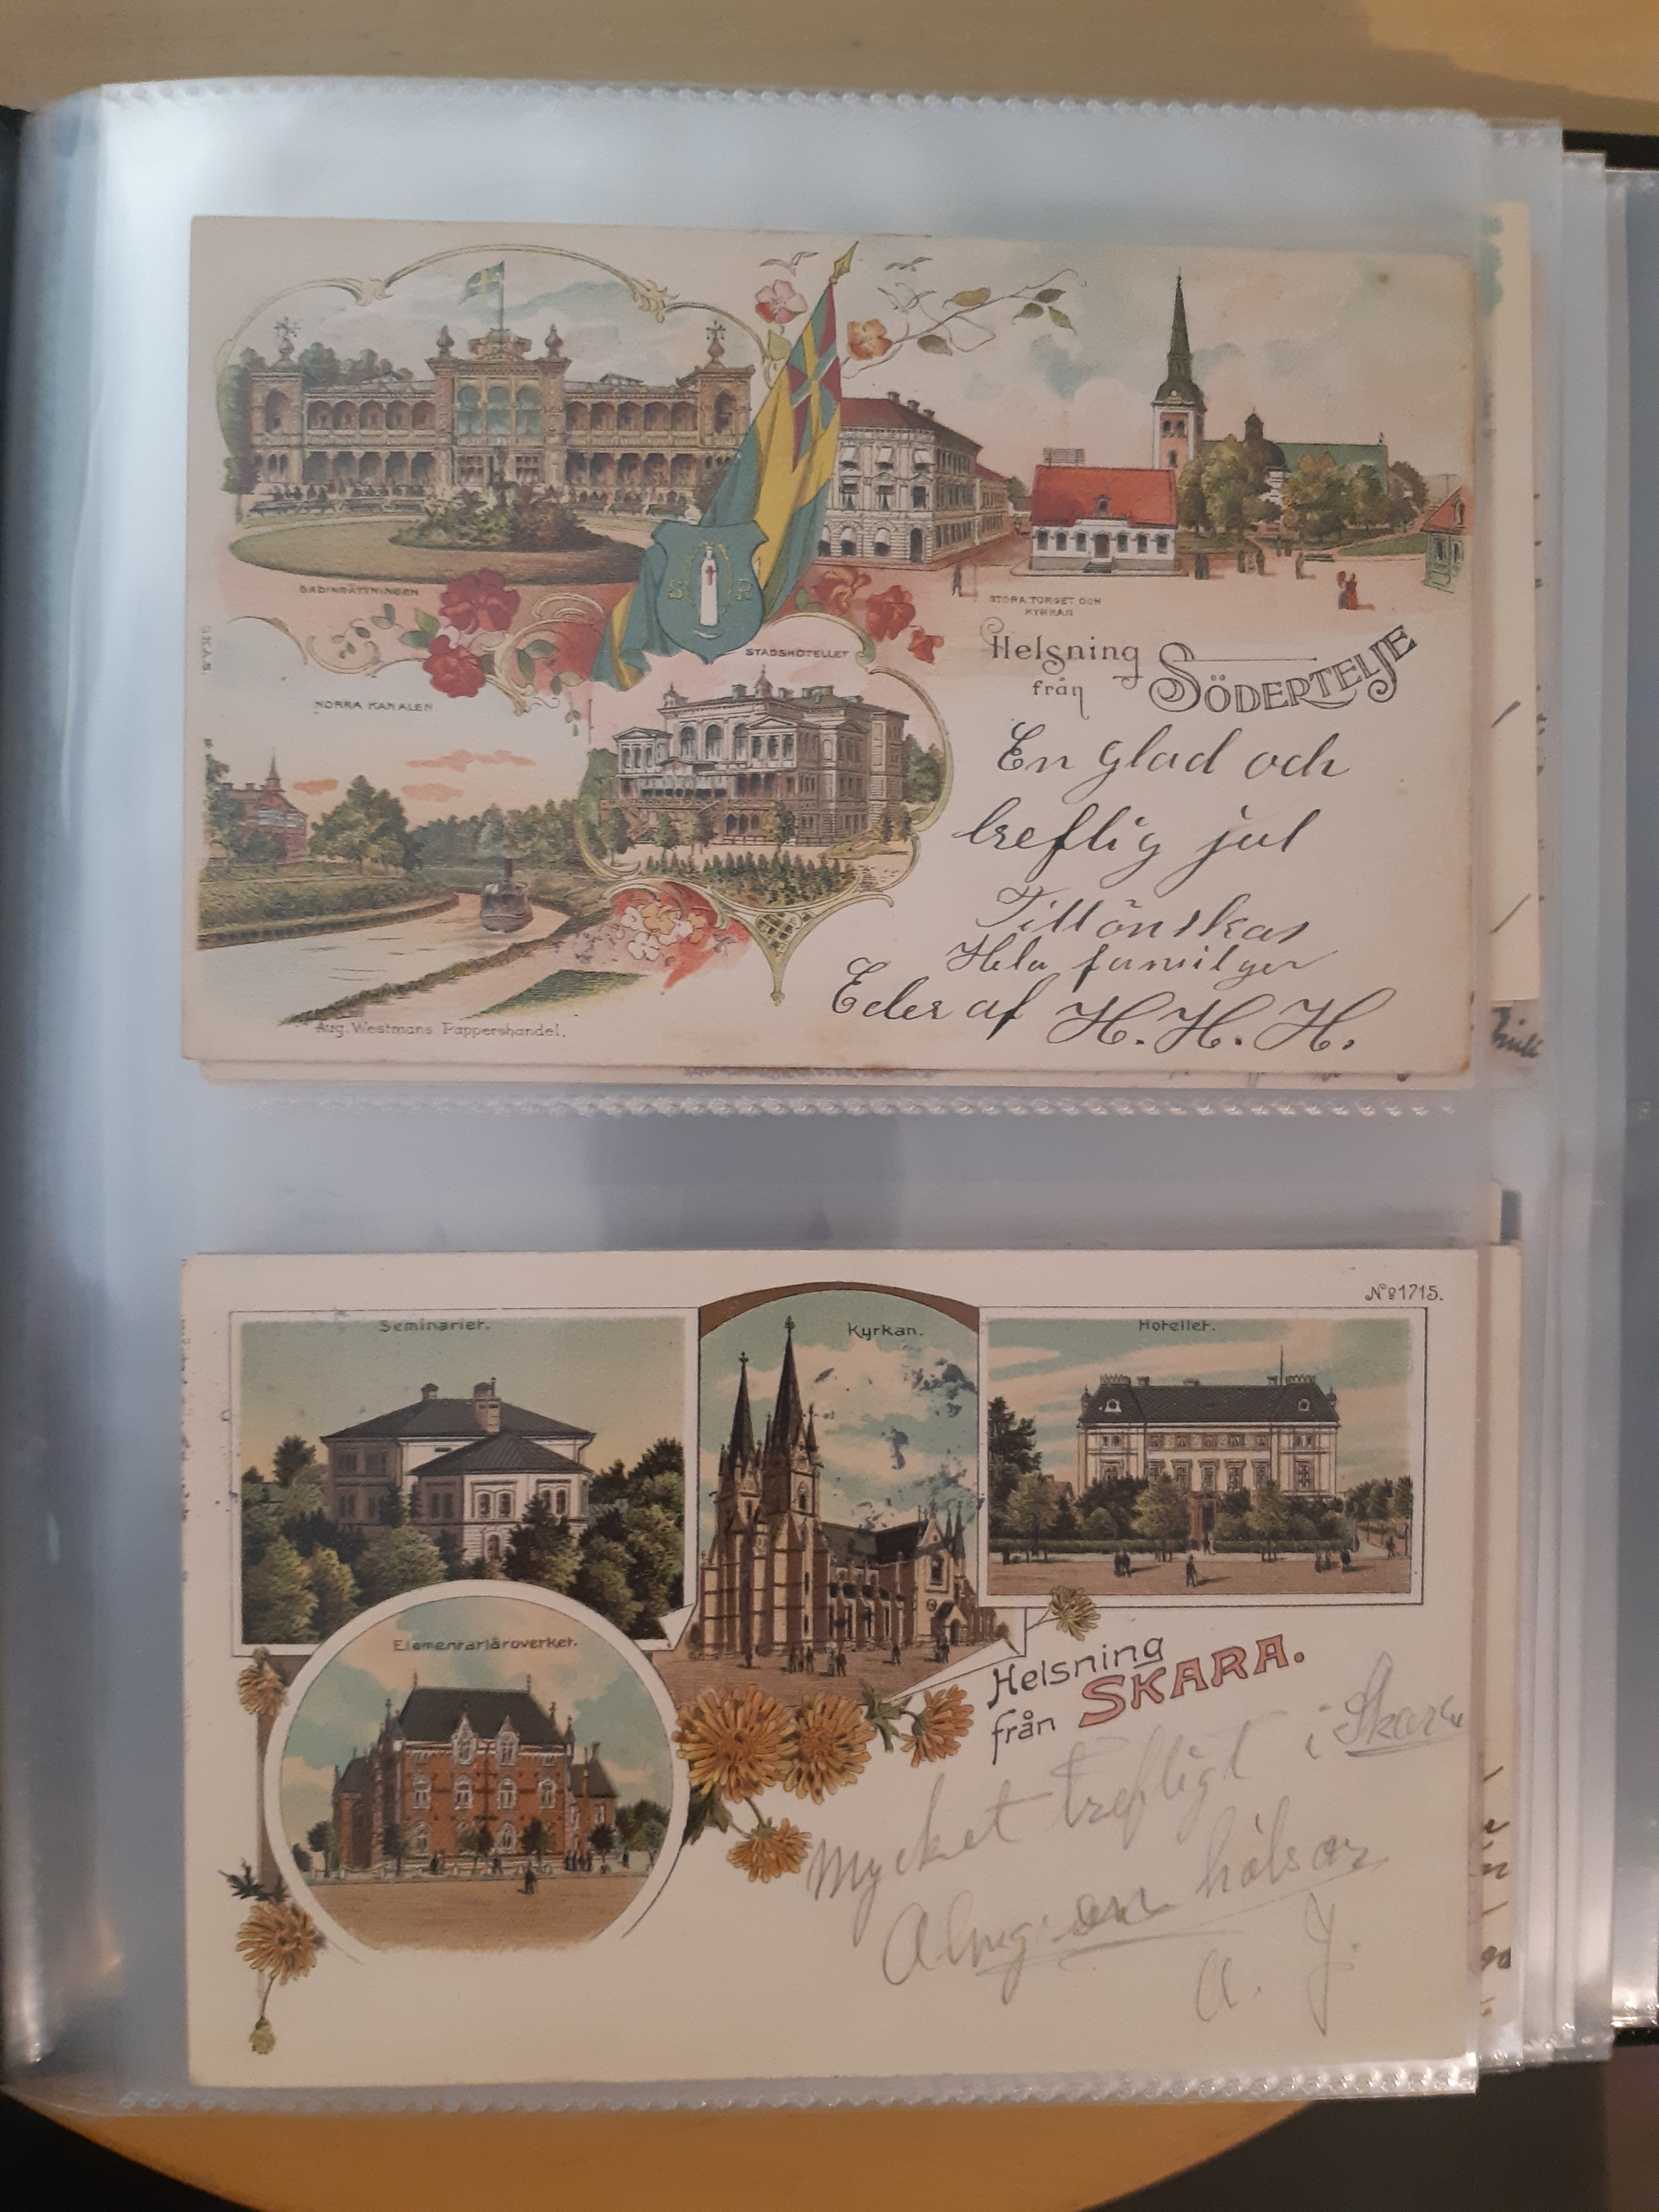 BADINRÄTTNINGEN
S R
STORA TORGET OCH
KYRKAN
STADSHOTELLET
NORRA KANALEN
Helsning
från SÖDERTELJE
En glad och
treflig jul
Tillönskas
Hela familjen
Eder af H. H. H.
Aug. Westmans Pappershandel.
No 1715.
Seminariet.
Kyrkan.
Hotellet.
Elementarläroverket.
Helsning
från SKARA.
Mycket trefligt i Skara
hälsar
A. J.